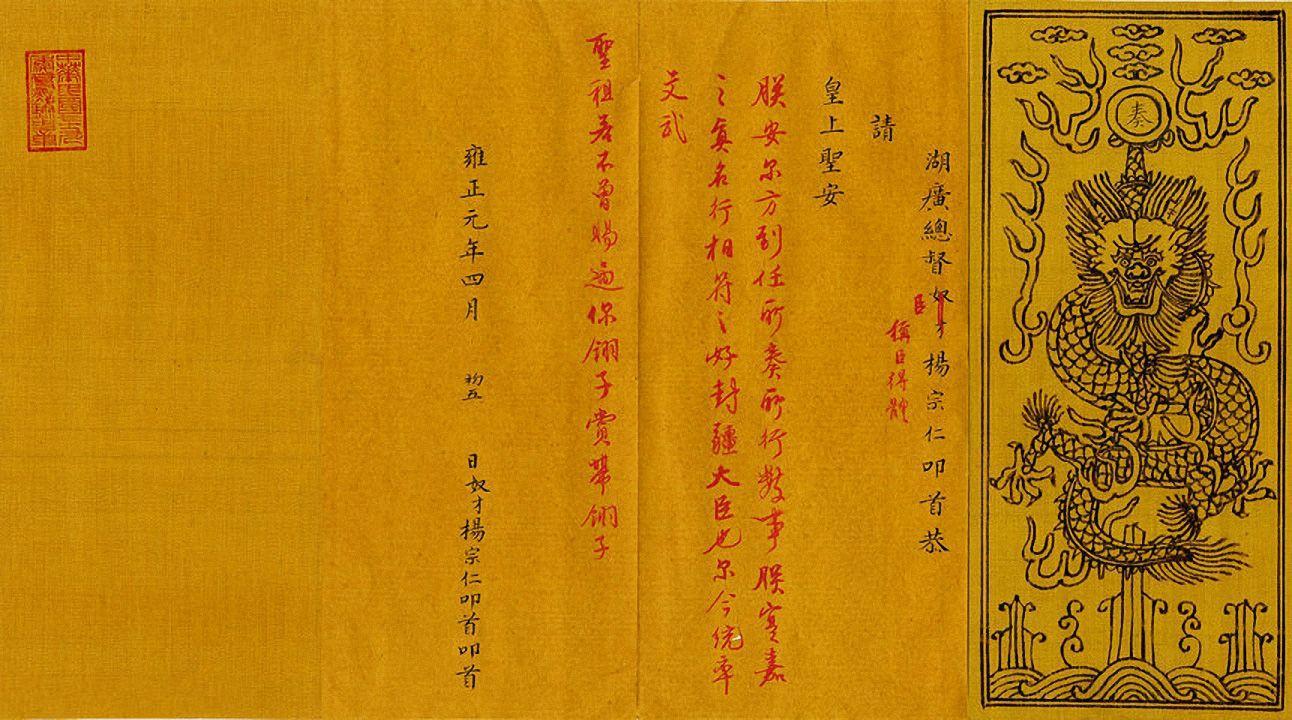 奏
湖廣總督奴才楊宗仁叩首恭
臣
稱臣得體
請
皇上聖安
朕安尔方到任所奏所行數事朕寔嘉
之真名行相符之好封疆大臣也尔今統率
文武
聖祖若不曾賜過你翎子賞帶翎子
雍正元年四月初五日奴才楊宗仁叩首叩首